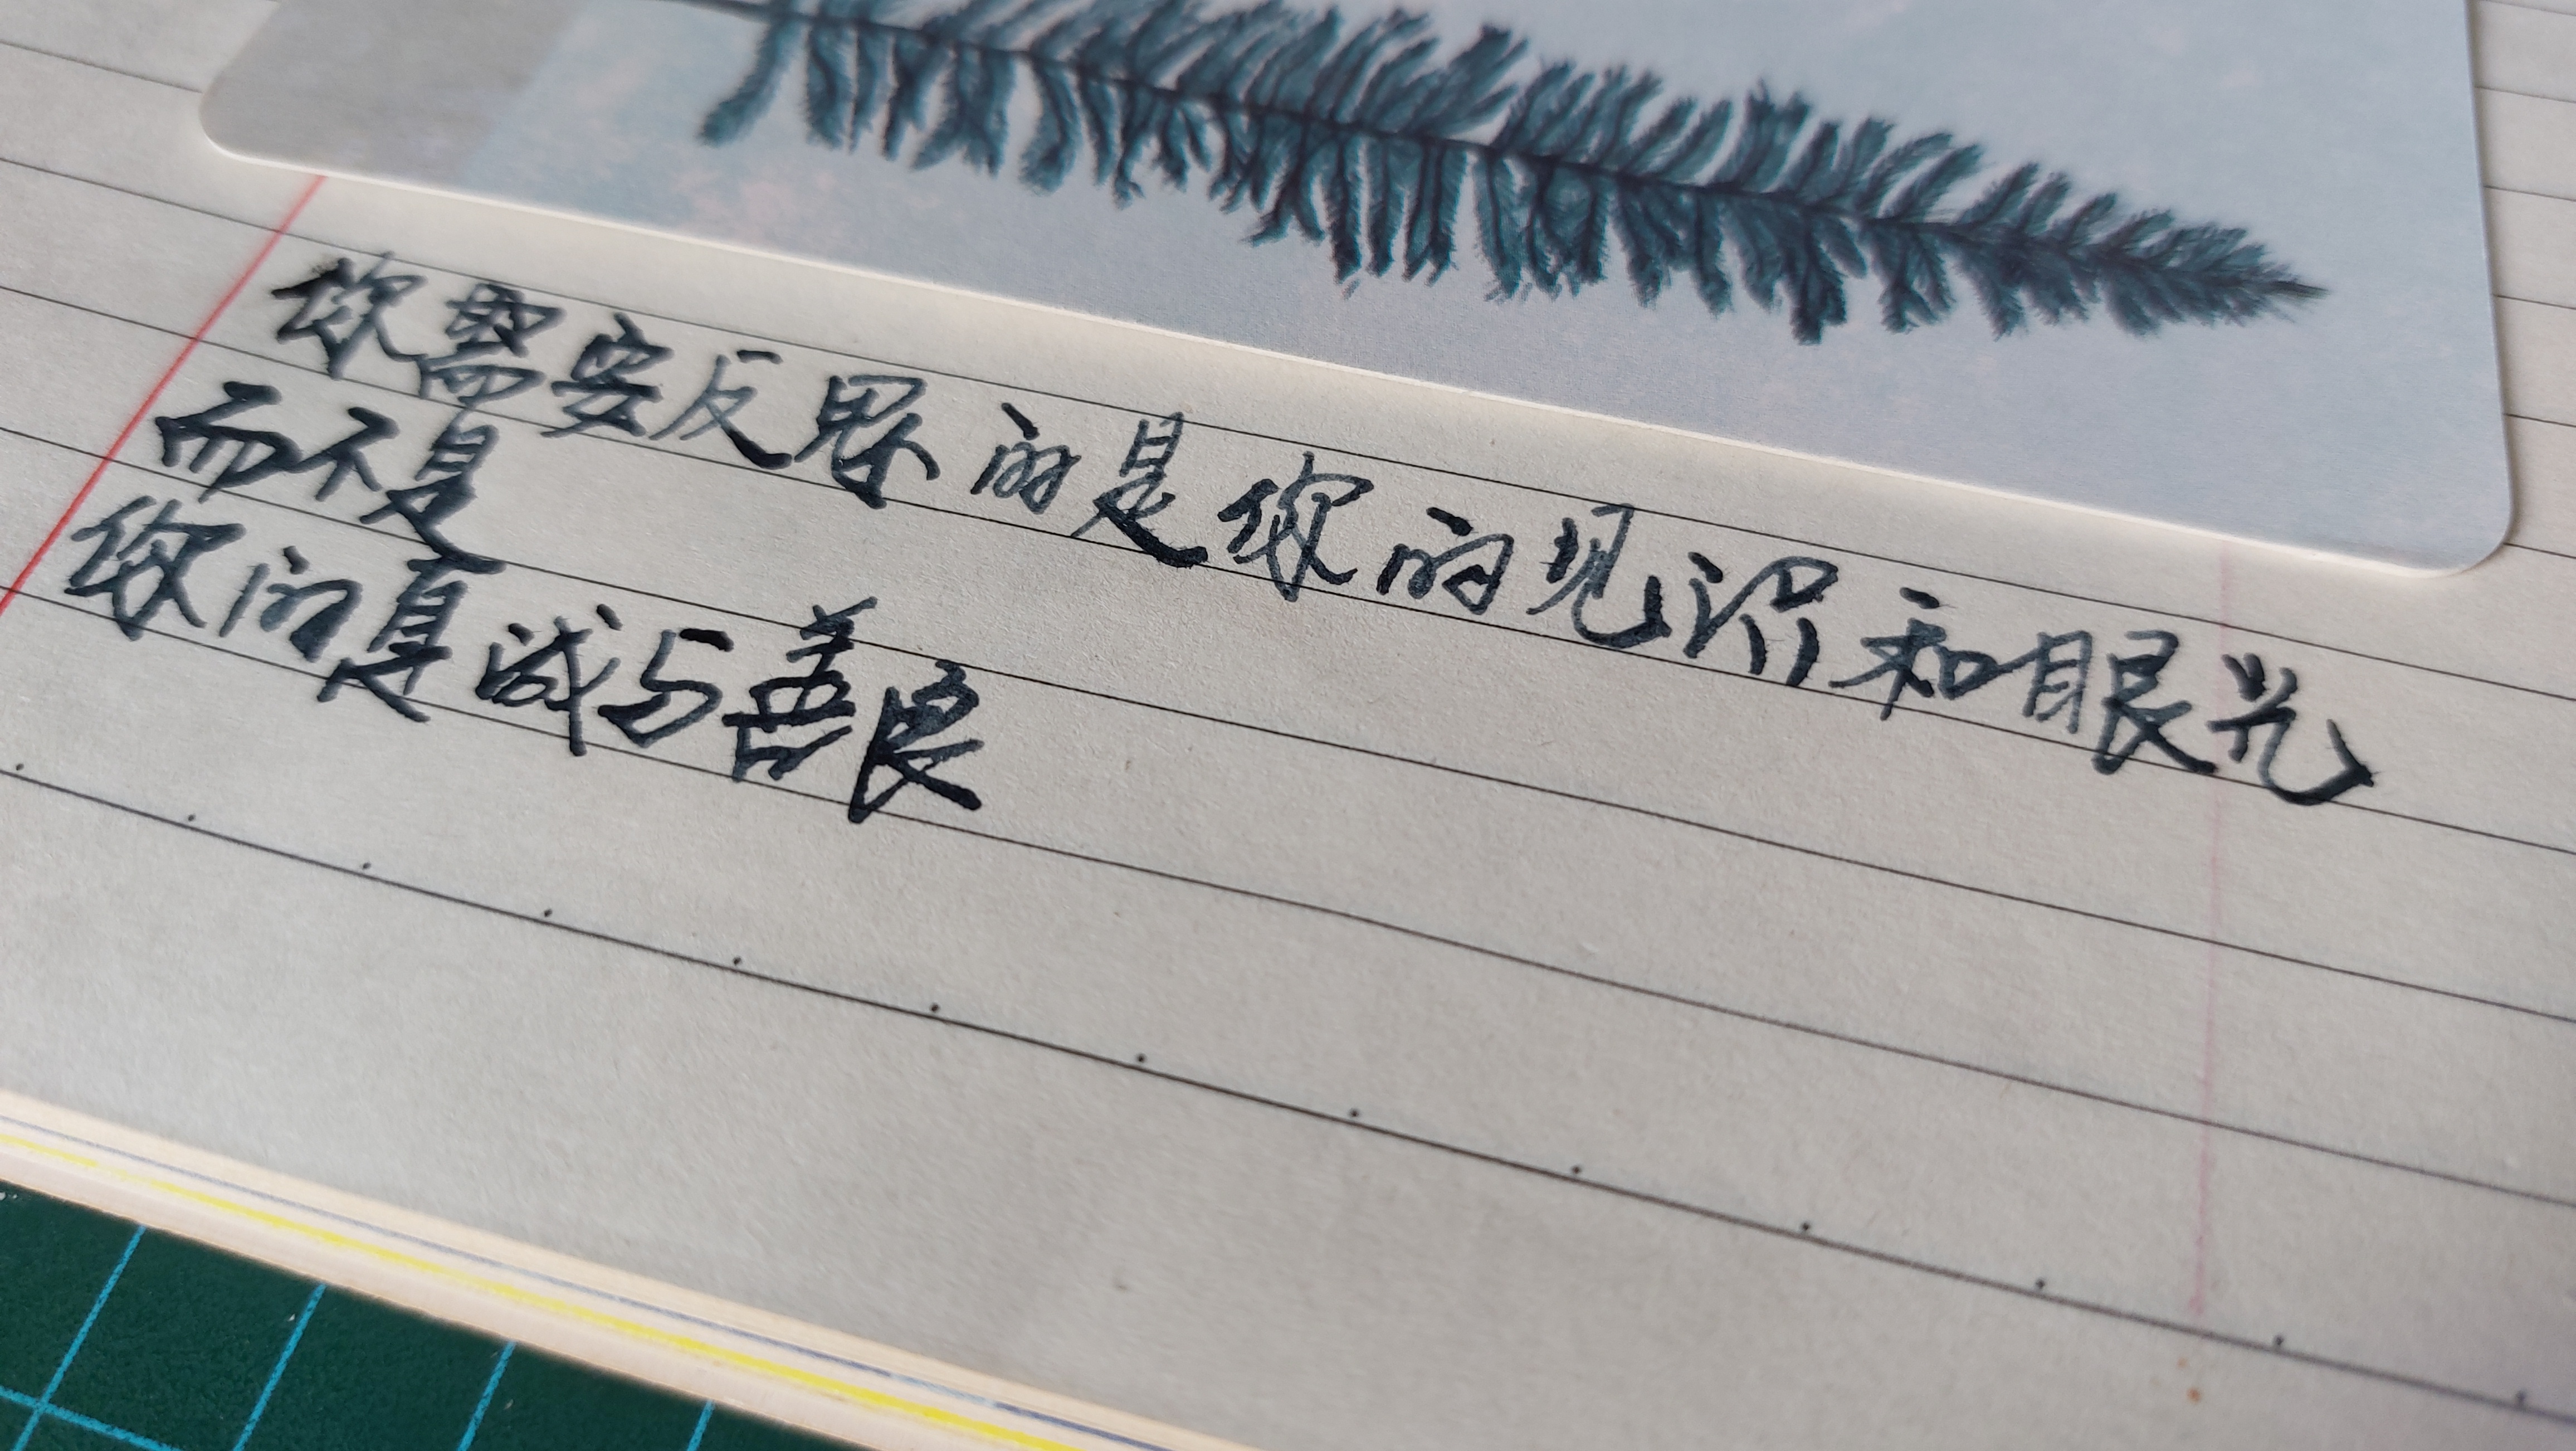 你需要反思的是你的见识和眼光
而不是
你的真诚与善良